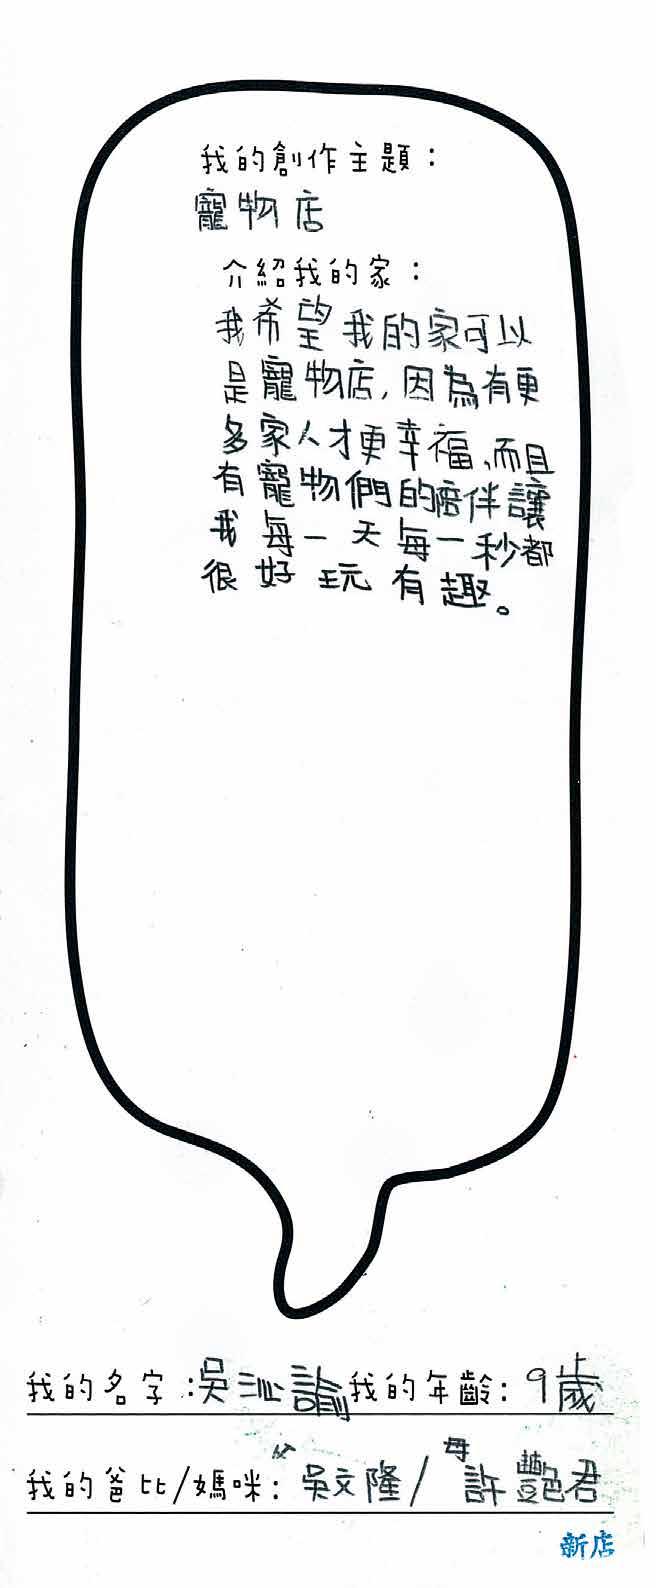 我的創作主題：
寵物店
介紹我的家：
我希望我的家可以
是寵物店，因為有更
多家人才更幸福、而且
有寵物們的陪伴讓
我每一天每一秒都
很好玩有趣。
我的名字：吳沁諭 我的年齡：9歲
父 母
我的爸比/媽咪：吳文隆/許艷君
新店